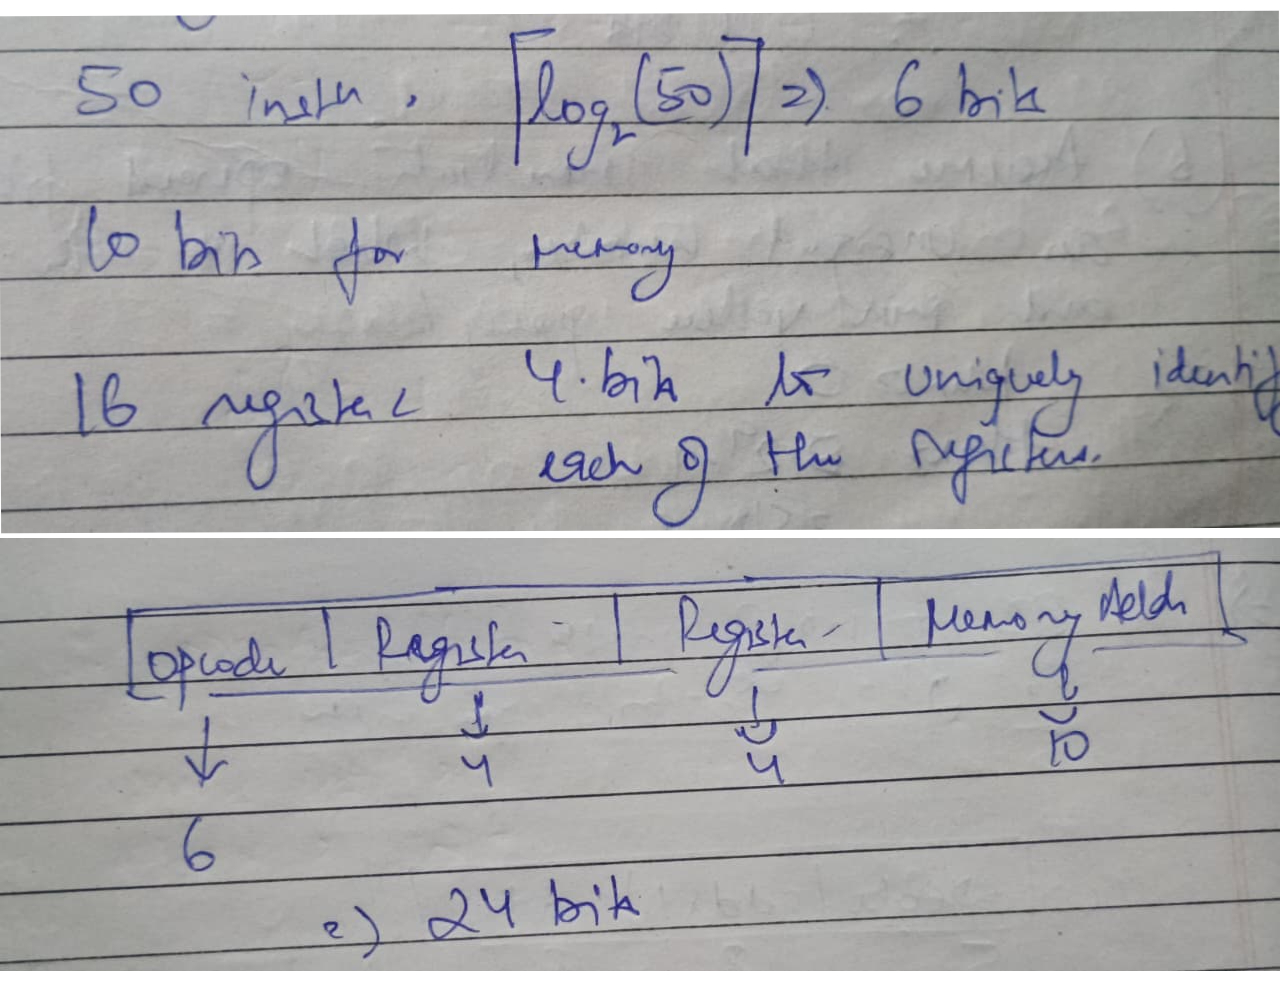 50 instr. ⌈log₂(50)⌉ => 6 bits
10 bits for memory
16 registers 4 bits to uniquely identify
each of the registers.
Opcode | Register | Register | Memory Addr
↓ ↓ ↓ ↓
6 4 4 10
=> 24 bits